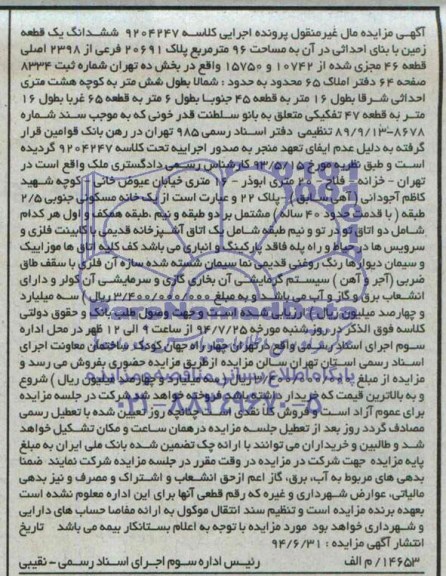 آگهی مزایده مال غیرمنقول پرونده اجرایی کلاسه ۹۲۰۴۲۴۷ ششدانگ یک قطعه
زمین با بنای احداثی در آن به مساحت ۹۶ مترمربع پلاک ۲۰۶۹۱ فرعی از ۲۳۹۸ اصلی
قطعه ۴۶ مجزی شده از ۱۰۷۴۲ و ۱۵۷۵۰ واقع در بخش ده تهران شماره ثبت ۸۳۳۴
صفحه ۶۴ دفتر املاک ۶۵ محدود به حدود : شمالا بطول شش متر به کوچه هشت متری
احداثی شرقا بطول ۱۶ متر به قطعه ۴۵ جنوبا بطول ۶ متر به قطعه ۶۵ غربا بطول ۱۶
متر به قطعه ۴۷ تفکیکی متعلق به بانو سلطنت قدر خونی که به موجب سند شماره
۸۶۷۸-۸۹/۹/۱۳ تنظیمی دفتر اسناد رسمی ۹۸۵ تهران در رهن بانک قوامین قرار
گرفته به دلیل عدم ایفای تعهد منجر به صدور اجراییه تحت کلاسه ۹۲۰۴۲۴۷ گردیده
است و طبق نظریه مورخ ۹۳/۵/۱۵ کارشناس رسمی دادگستری ملک واقع است در
تهران - خزانه - فلاح - ۲۰ متری ابوذر - ۱۲ متری خیابان عیوض خانی - کوچه شهید
کاظم آجودانی (آهی سابق) - پلاک ۲۲ و عبارت است از یک خانه مسکونی جنوبی ۲/۵
طبقه (با قدمت حدود ۴۰ ساله) مشتمل بر دو طبقه و نیم، طبقه همکف و اول هر کدام
شامل دو اتاق تو در تو و نیم طبقه شامل یک اتاق آشپزخانه قدیمی با کابینت فلزی و
سرویس ها در حیاط و راه پله فاقد پارکینگ و انباری می باشد کف کلیه اتاق ها موزاییک
و سیمان دیوارها رنگ روغنی قدیمی نما سیمان شسته شده سازه آن فلزی با سقف طاق
ضربی (آجر و آهن) سیستم گرمایشی آن بخاری گازی و سرمایشی آن کولر و دارای
انشعاب برق و گاز و آب می باشد و به مبلغ ۳/۴۰۰/۰۰۰/۰۰۰ ریال (سه میلیارد
و چهارصد میلیون ریال) ارزیابی شده است و جهت وصول طلب بانک و حقوق دولتی
کلاسه فوق الذکر در روز شنبه مورخه ۹۴/۷/۲۵ از ساعت ۹ الی ۱۲ ظهر در محل اداره
سوم اجرای اسناد رسمی واقع در تهران چهارراه جهان کودک ساختمان معاونت اجرای
اسناد رسمی استان تهران سالن مزایده از طریق مزایده حضوری بفروش می رسد و
مزایده از مبلغ سه میلیارد و چهارصد میلیون ریال) شروع
و به بالاترین قیمت که خریدار داشته باشد فروخته خواهد شد شرکت در جلسه مزایده
برای عموم آزاد است و فروش کلا نقدی است چنانچه روز تعیین شده با تعطیل رسمی
مصادف گردد روز بعد از تعطیل جلسه مزایده درهمان ساعت و مکان تشکیل خواهد
شد و طالبین و خریداران می توانند با ارائه چک تضمین شده بانک ملی ایران به مبلغ
پایه مزایده جهت شرکت در مزایده در وقت مقرر در جلسه مزایده شرکت نمایند ضمنا
بدهی های مربوط به آب، برق، گاز اعم ازحق انشعاب و اشتراک و مصرف و نیز بدهی
مالیاتی، عوارض شهرداری و غیره که رقم قطعی آنها برای این اداره معلوم نشده است
بعهده برنده مزایده است و تنظیم سند انتقال موکول به ارائه مفاصا حساب های دارایی
و شهرداری خواهد بود مورد مزایده با توجه به اعلام بستانکار بیمه می باشد تاریخ
انتشار آگهی مزایده : ۹۴/۶/۳۱
۱۴۶۵۳/م الف رئیس اداره سوم اجرای اسناد رسمی - نقیبی